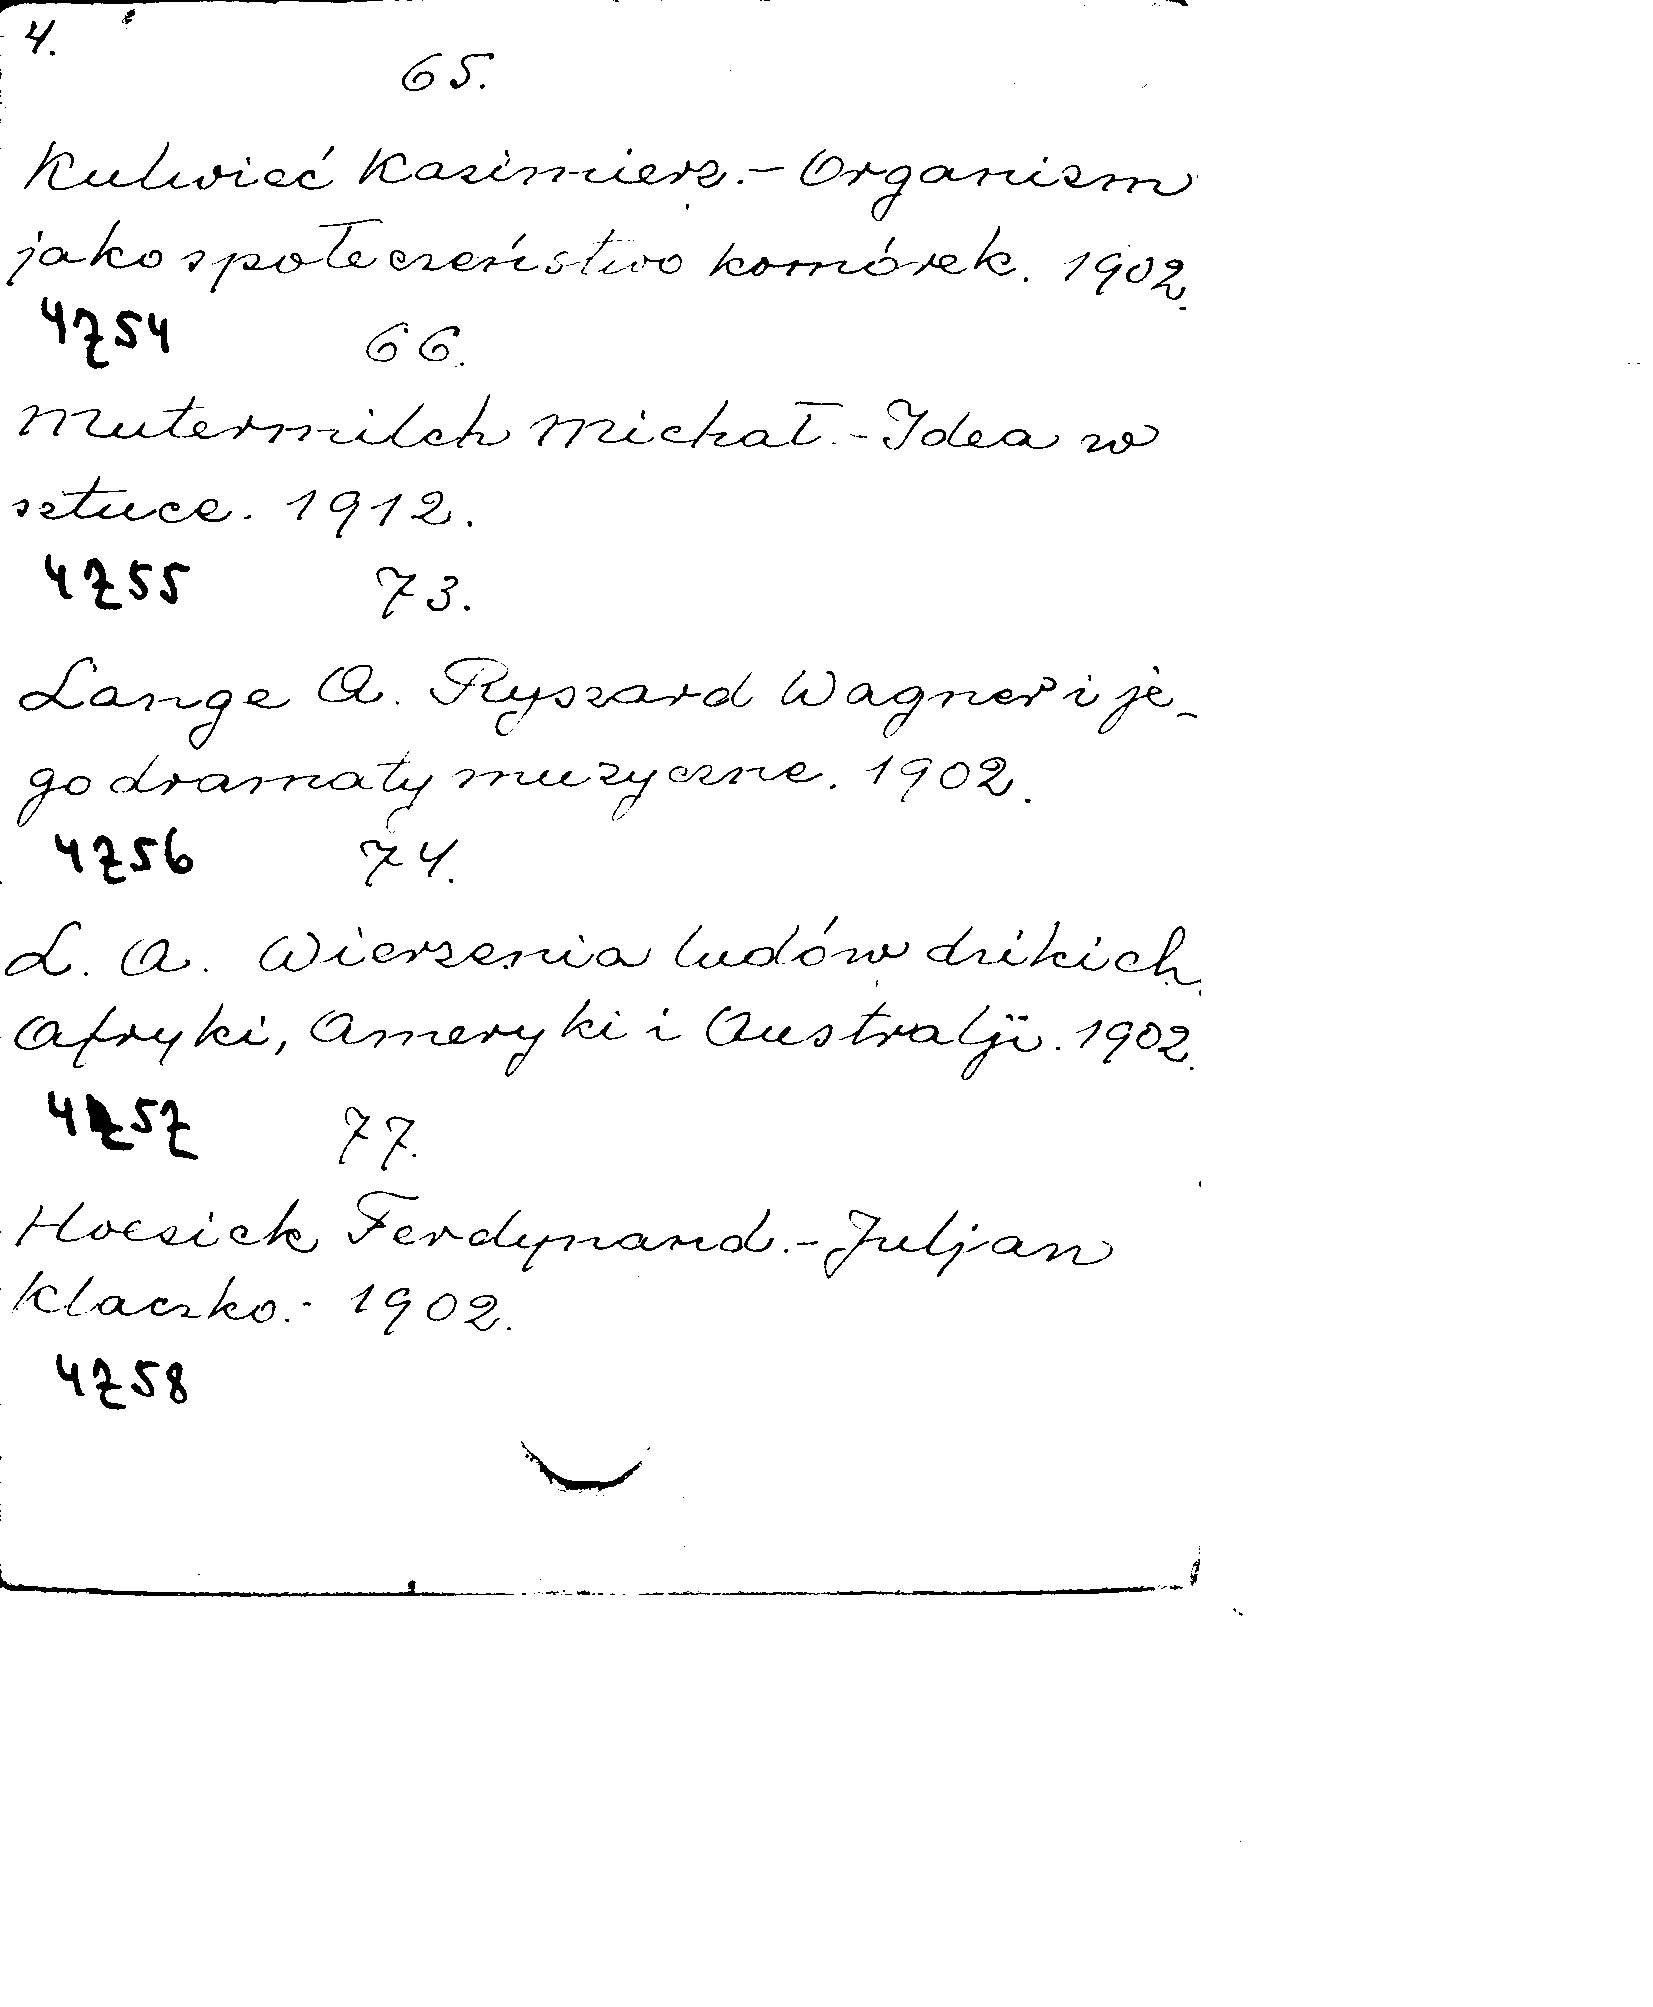 4.
65.
Kulwieć Kazimierz. - Organizm
jako społeczeństwo komórek. 1902.
4754 66.
Mutermilch Michał. - Idea w
sztuce. 1912.
4755 73.
Lange A. Ryszard Wagner i je-
go dramaty muzyczne. 1902.
4756 74.
L. A. Wierzenia ludów dzikich
Afryki, Ameryki i Australji. 1902.
4757 77.
Hoesick Ferdynand. - Juljan
Klaczko. - 1902.
4758